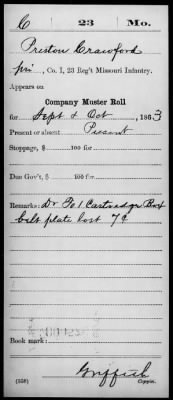 C 23 Mo.
Preston Crawford
Pri, Co. I, 23 Reg't Missouri Infantry.
Appears on
Company Muster Roll
for Sept & Oct, 1863
Present or absent Present
Stoppage, $ 100 for
Due Gov't, $ 100 for
Remarks: Dr To 1 Cartridge Box
belt plate lost 7¢
Book mark:
Griffith
(358) Copyist.